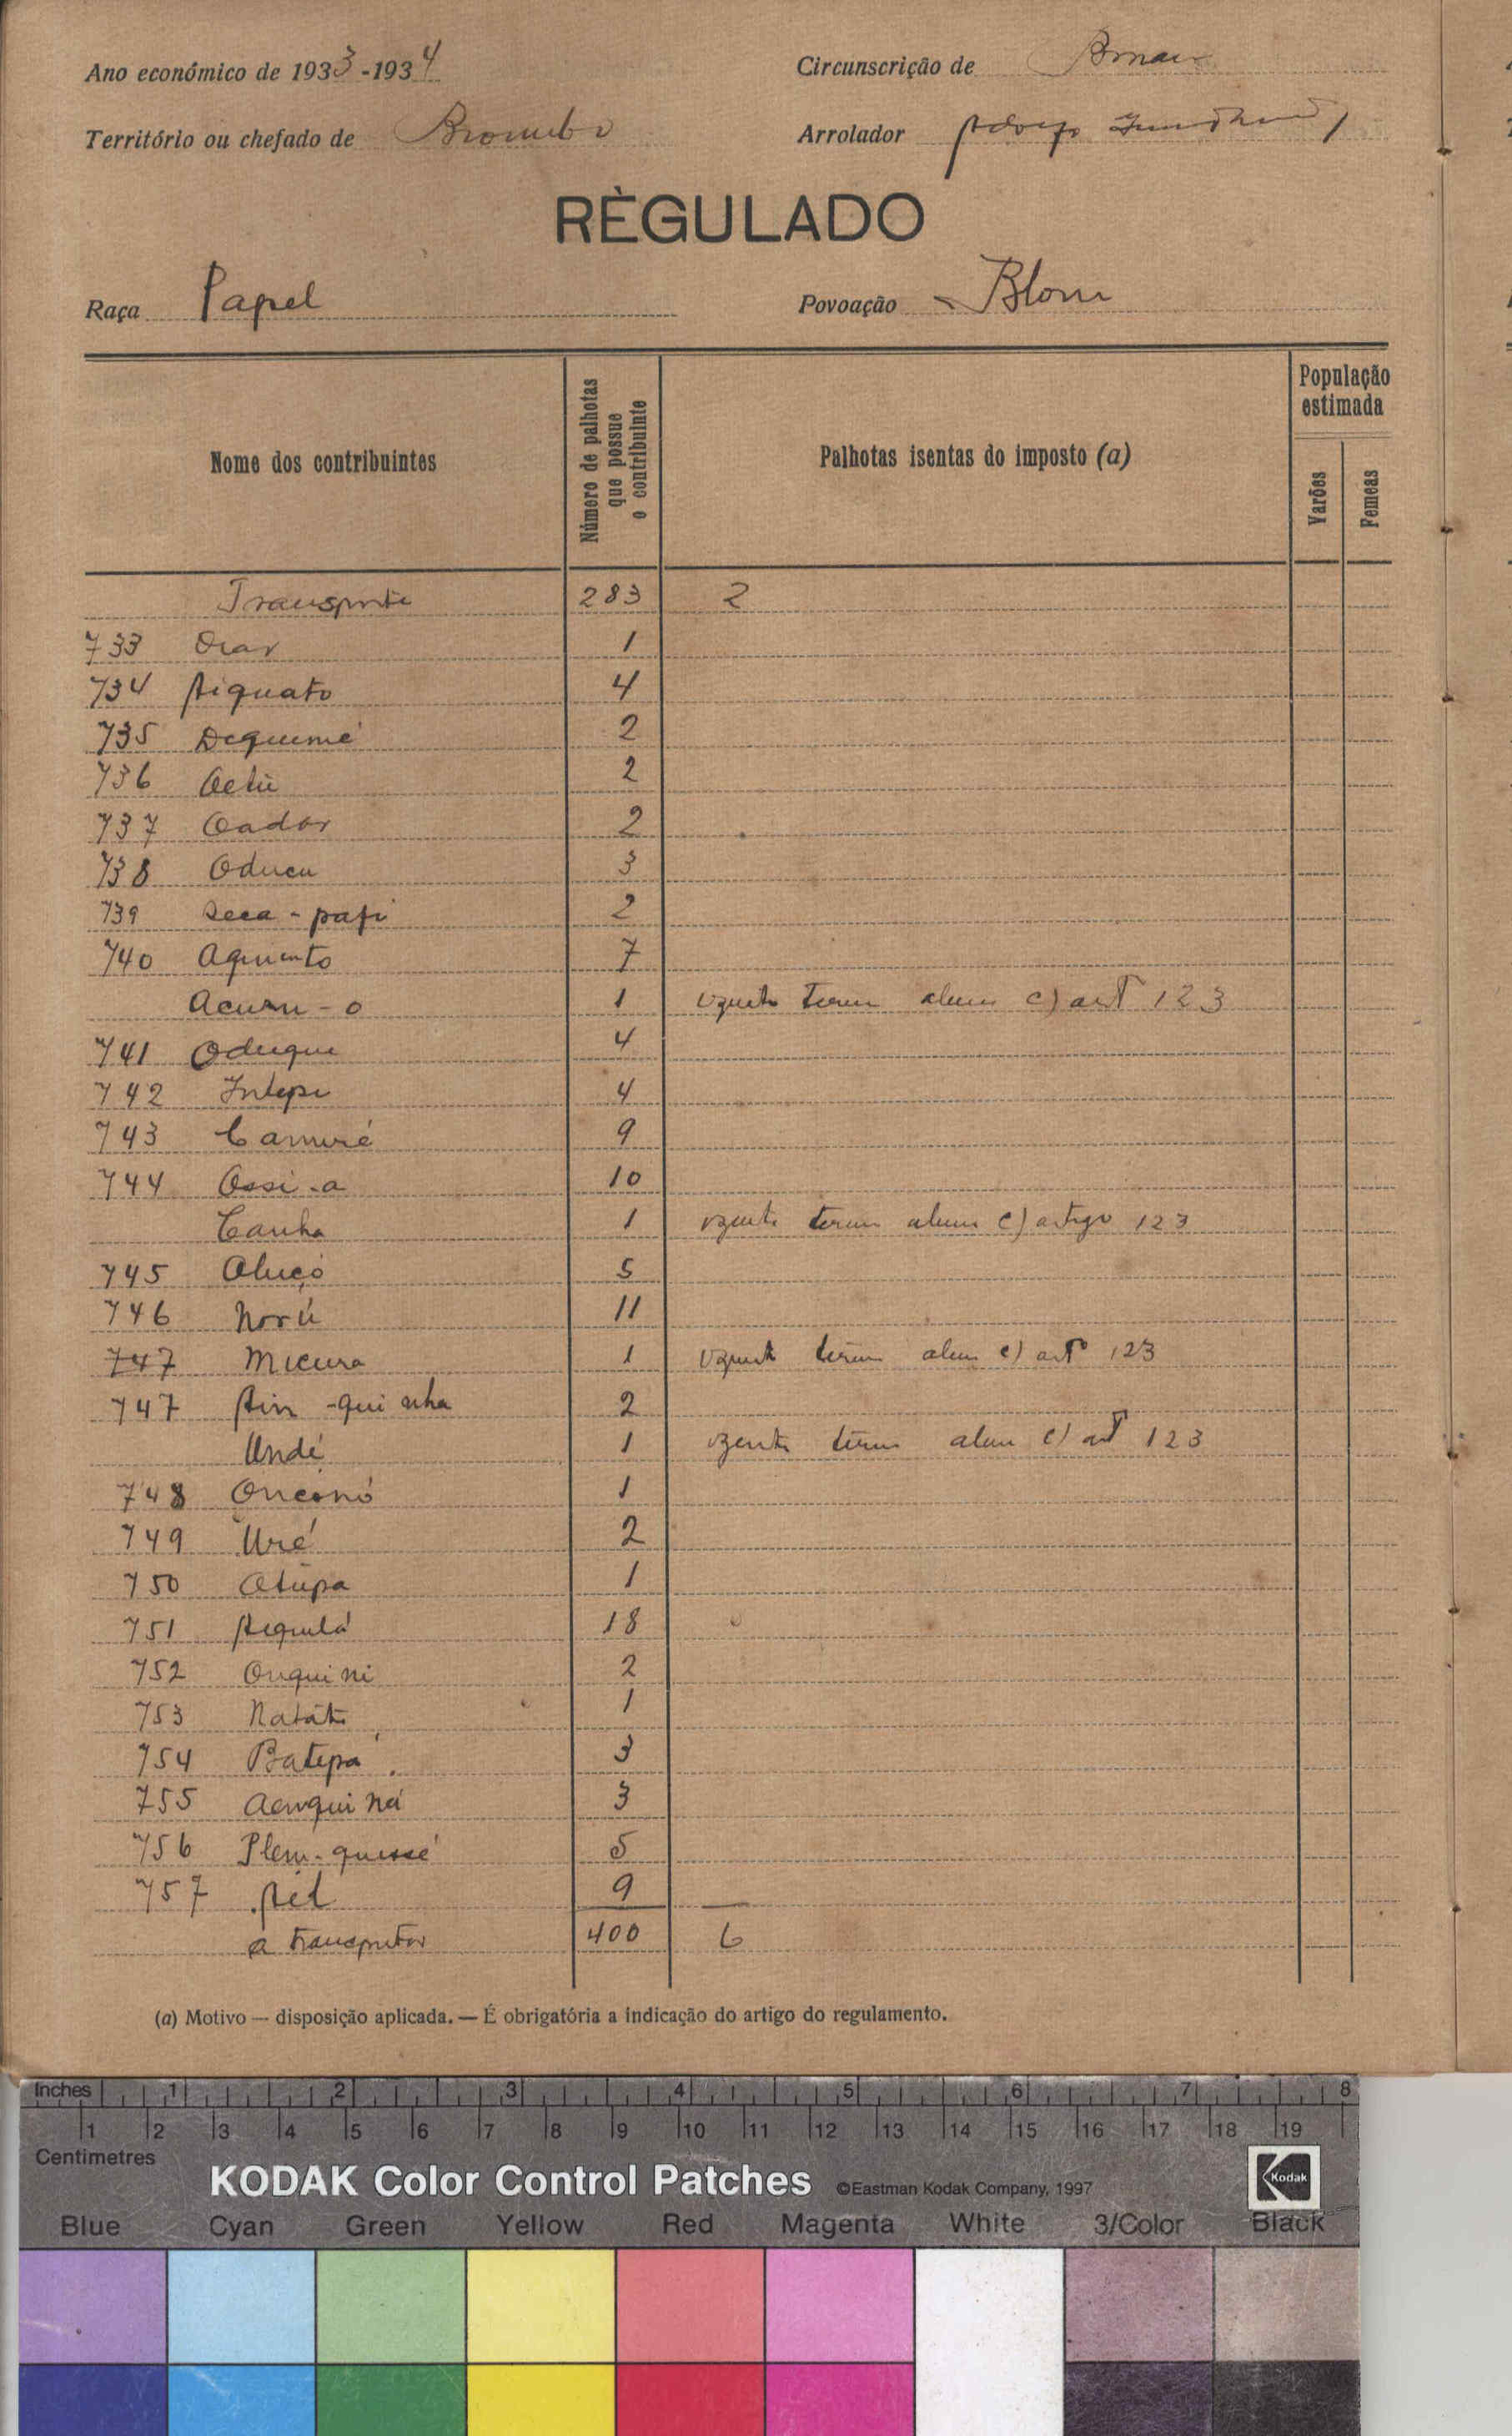 Ano económico de 1933-1934
Circunscrição de
Território ou chefado de
Arrolador
RÈGULADO
Raça Papel
Povoação Blom
Nome dos contribuintes
Número de palhotas que possue o contribuinte
Palhotas isentas do imposto (a)
População estimada
Varões
Femeas
Transporte 283 2
733 Orar 1
734 Aiquato 4
735 Dequemé 2
736 2
737 Oador 2
738 Oducu 3
739 2
740 7
1 c) artº 123
741 Oduque 4
742 Intepe 4
743 Camuré 9
744 Ossi-a 10
Canha 1 c) artigo 123
745 5
746 Norú 11
747 Micura 1 c) artº 123
747 Ain-quinha 2
Undé 1 c) artº 123
748 Onconó 1
749 Uré 2
750 Atupa 1
751 Aequilá 18
752 Onquini 2
753 1
754 Batepá 3
755 3
756 Plem-quissé 5
757 9
a transportar 400 6
(a) Motivo — disposição aplicada. — É obrigatória a indicação do artigo do regulamento.
Inches 1 2 3 4 5 6 7 8
1 2 3 4 5 6 7 8 9 10 11 12 13 14 15 16 17 18 19
Centimetres
KODAK Color Control Patches ©Eastman Kodak Company, 1997 Kodak
Blue Cyan Green Yellow Red Magenta White 3/Color Black